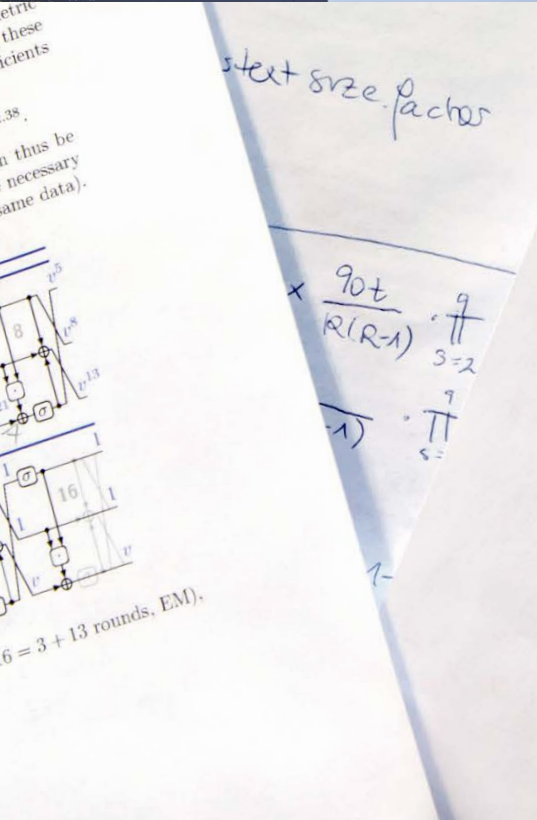 etric
these
icients
.38.
n thus be
necessary
same data).
v⁵
8
v⁸
v¹³
21
σ
1
1
σ
16
1
1
v
v
6 = 3 + 13 rounds, EM),
stext size factor
× 90t / R(R-1) · ∏
9
3=2
-1) · ∏
9
s=
1-